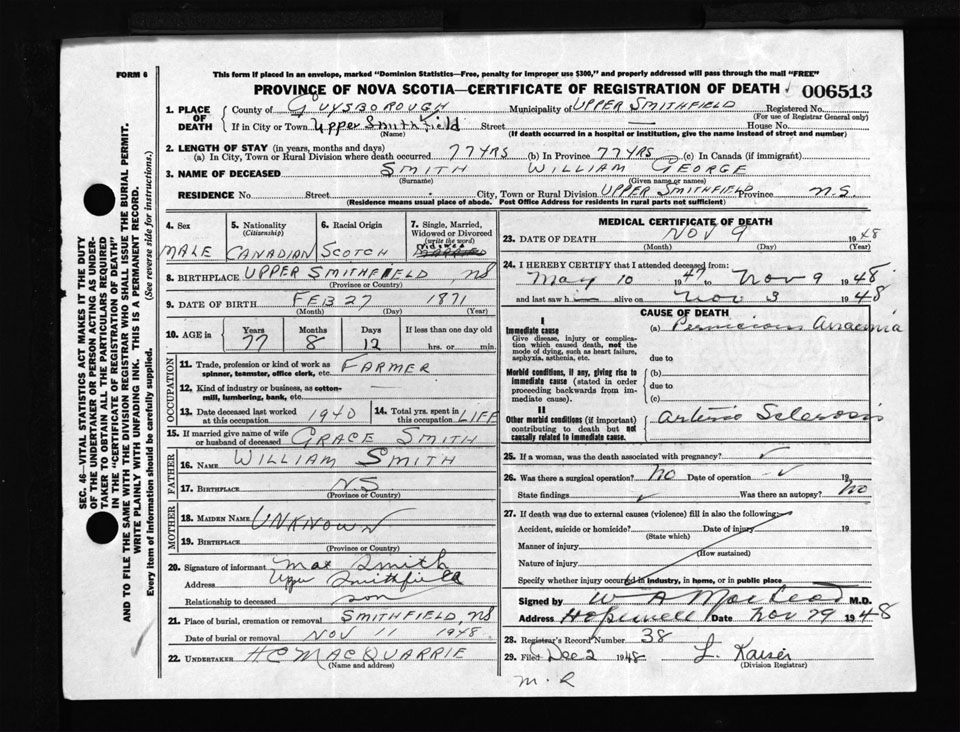 FORM 6
This form if placed in an envelope, marked "Dominion Statistics—Free, penalty for improper use $300," and properly addressed will pass through the mail "FREE"
PROVINCE OF NOVA SCOTIA—CERTIFICATE OF REGISTRATION OF DEATH 006513
1. PLACE OF DEATH County of GUYSBOROUGH Municipality of UPPER SMITHFIELD Registered No.
(For use of Registrar General only)
If in City or Town Upper Smithfield Street — House No.
(Name) (If death occurred in a hospital or institution, give the name instead of street and number)
2. LENGTH OF STAY (in years, months and days)
(a) In City, Town or Rural Division where death occurred 77 YRS (b) In Province 77 YRS (c) In Canada (if immigrant)
3. NAME OF DECEASED SMITH WILLIAM GEORGE
(Surname) (Given name or names)
RESIDENCE No. Street City, Town or Rural Division UPPER SMITHFIELD Province N.S.
(Residence means usual place of abode. Post Office Address for residents in rural parts not sufficient)
4. Sex 5. Nationality (Citizenship) 6. Racial Origin 7. Single, Married, Widowed or Divorced (write the word)
MALE CANADIAN SCOTCH
8. BIRTHPLACE UPPER SMITHFIELD, NS
(Province or Country)
9. DATE OF BIRTH FEB 27 1871
(Month) (Day) (Year)
10. AGE in Years Months Days If less than one day old
77 8 12 hrs. or min.
OCCUPATION
11. Trade, profession or kind of work as spinner, teamster, office clerk, etc. FARMER
12. Kind of industry or business, as cotton-mill, lumbering, bank, etc. —
13. Date deceased last worked at this occupation 1940 14. Total yrs. spent in this occupation LIFE
15. If married give name of wife or husband of deceased GRACE SMITH
FATHER
16. NAME WILLIAM SMITH
17. BIRTHPLACE N.S
(Province or Country)
MOTHER
18. MAIDEN NAME UNKNOWN
19. BIRTHPLACE
(Province or Country)
20. Signature of informant Max Smith
Address Upper Smithfield
Relationship to deceased son
21. Place of burial, cremation or removal SMITHFIELD, NS
Date of burial or removal NOV 11 1948.
22. UNDERTAKER H C MACQUARRIE
(Name and address)
MEDICAL CERTIFICATE OF DEATH
23. DATE OF DEATH NOV 9 1948
(Month) (Day) (Year)
24. I HEREBY CERTIFY that I attended deceased from:
May 10 1947 to Nov 9 1948
and last saw h i— alive on Nov 3 1948
CAUSE OF DEATH
I
Immediate cause (a) Pernicious Anaemia
Give disease, injury or complication which caused death, not the mode of dying, such as heart failure, asphyxia, asthenia, etc.
due to
Morbid conditions, if any, giving rise to immediate cause (stated in order proceeding backwards from immediate cause).
(b)
due to
(c)
II
Other morbid conditions (if important) contributing to death but not causally related to immediate cause.
Arterio Sclerosis
25. If a woman, was the death associated with pregnancy? ✓
26. Was there a surgical operation? NO Date of operation ✓ 19
State findings ✓ Was there an autopsy? NO
27. If death was due to external causes (violence) fill in also the following:—
Accident, suicide or homicide? Date of injury 19
(State which)
Manner of injury
(How sustained)
Nature of injury
Specify whether injury occurred in industry, in home, or in public place
Signed by W A MacLeod M.D.
Address Hopewell Date Nov 29 1948
28. Registrar's Record Number 38
29. Filed Dec 2 1948 L. Kaiser
(Division Registrar)
M. R
SEC. 46—VITAL STATISTICS ACT MAKES IT THE DUTY
OF THE UNDERTAKER OR PERSON ACTING AS UNDER-
TAKER TO OBTAIN ALL THE PARTICULARS REQUIRED
IN THE "CERTIFICATE OF REGISTRATION OF DEATH"
AND TO FILE THE SAME WITH THE DIVISION REGISTRAR WHO SHALL ISSUE THE BURIAL PERMIT.
WRITE PLAINLY WITH UNFADING INK. THIS IS A PERMANENT RECORD.
Every item of information should be carefully supplied. (See reverse side for instructions.)